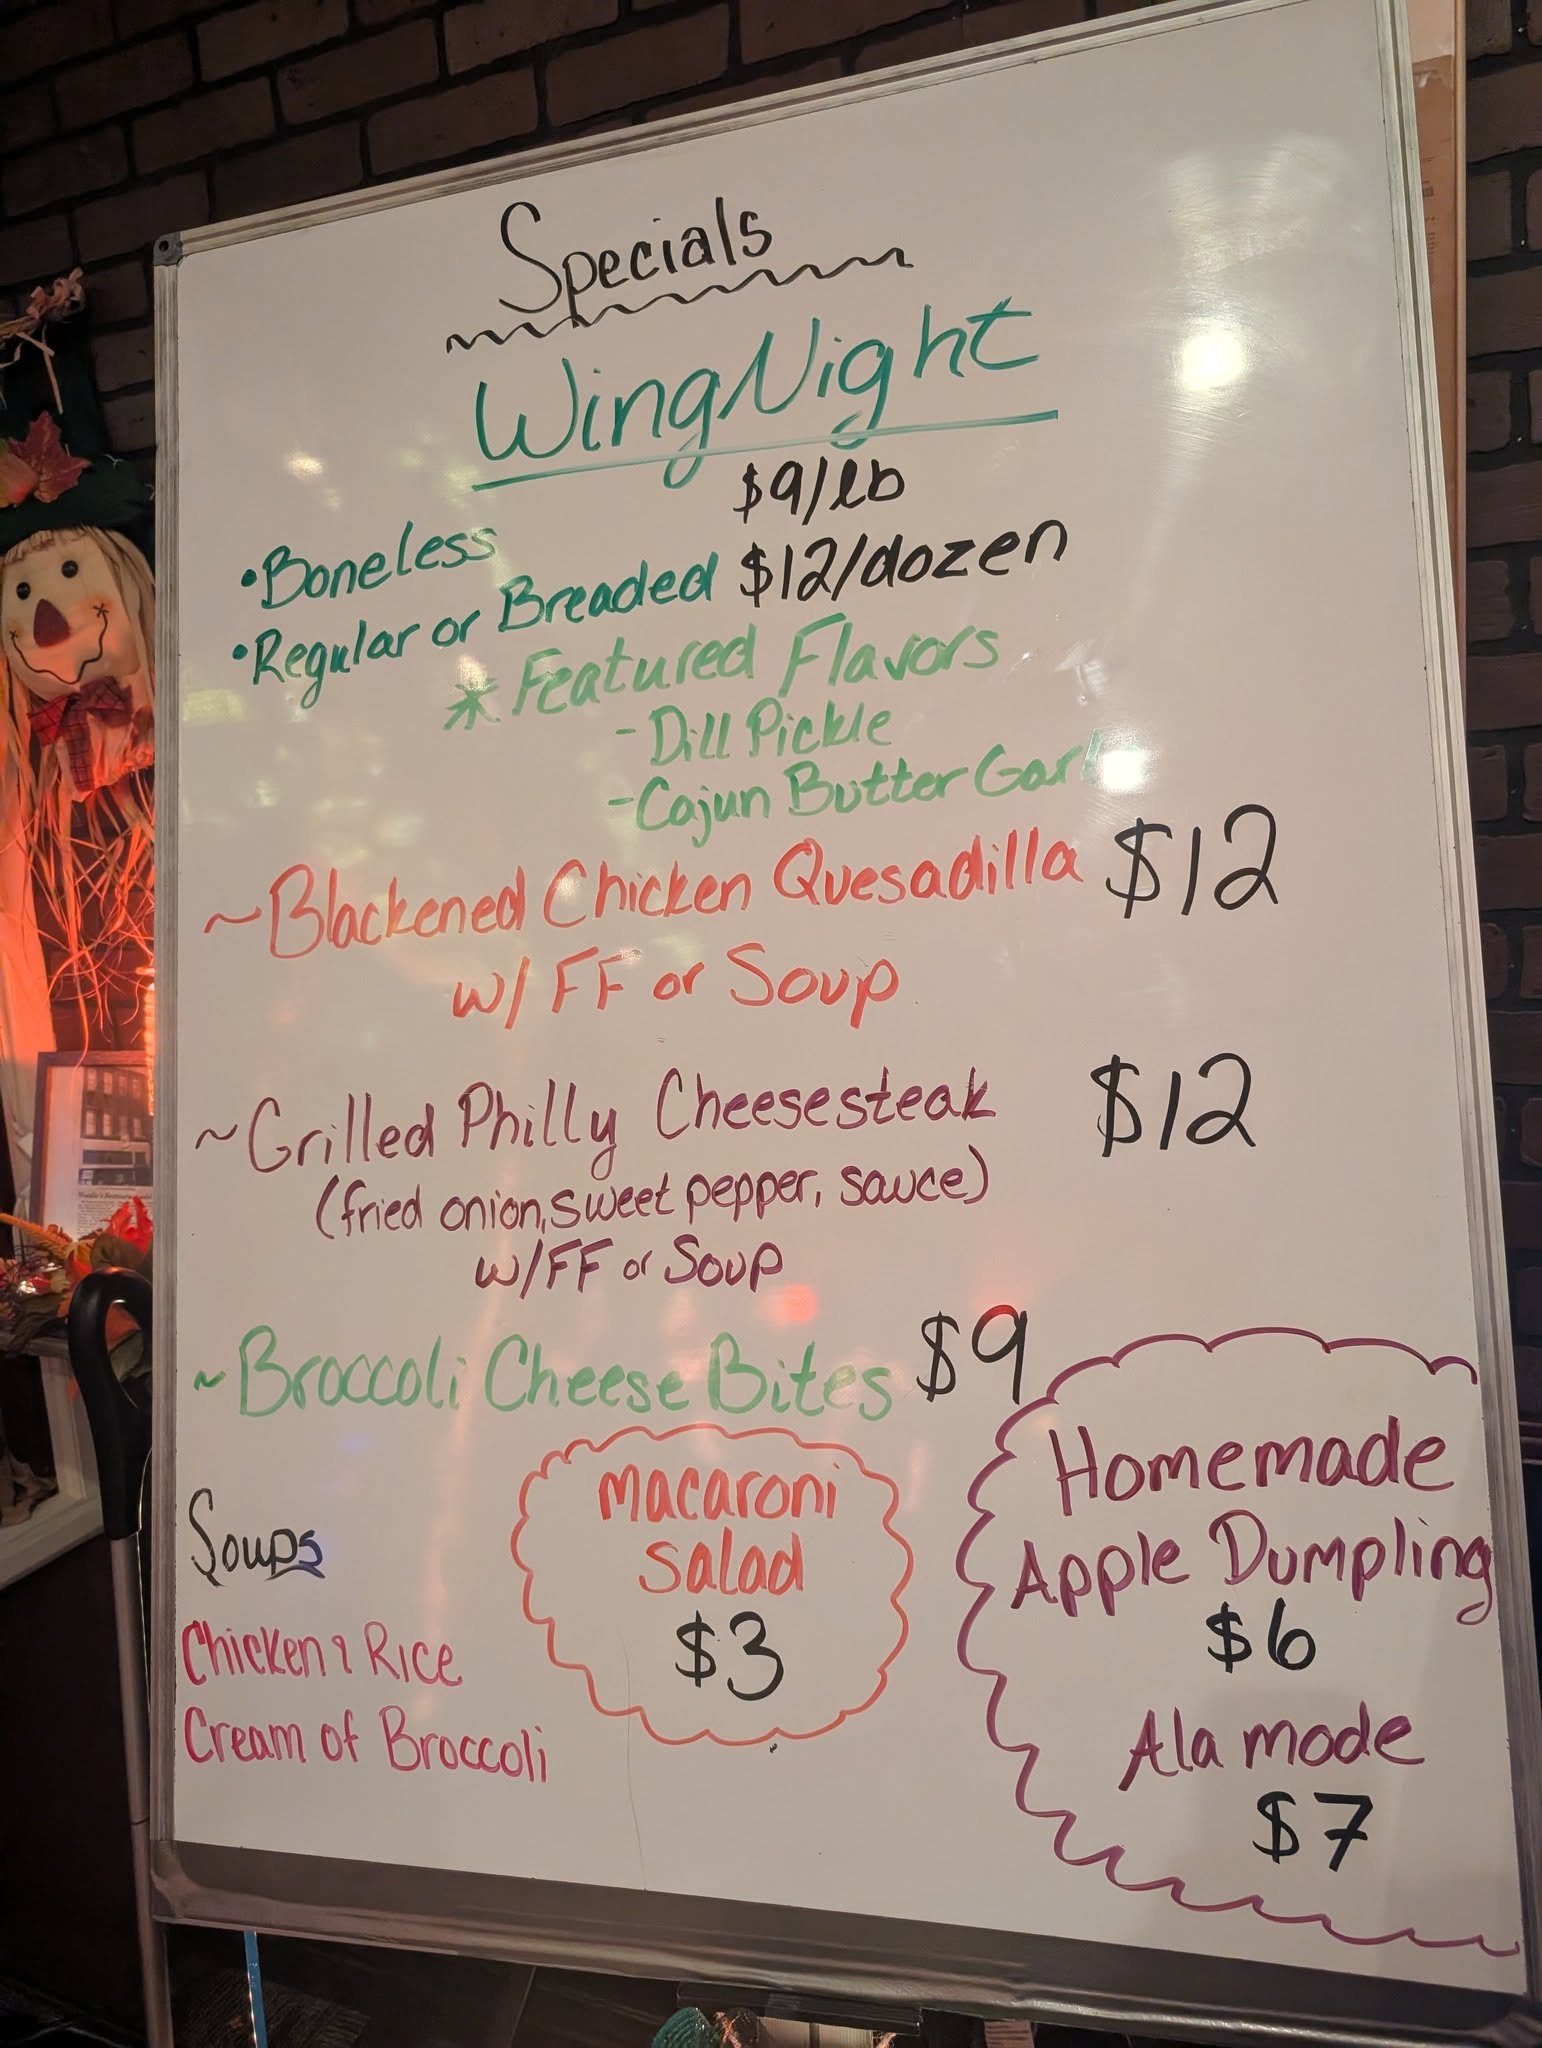 Specials
Wing Night
• Boneless $9/lb
• Regular or Breaded $12/dozen
* Featured Flavors
- Dill Pickle
- Cajun Butter
~ Blackened Chicken Quesadilla $12
w/ FF or Soup
~ Grilled Philly Cheesesteak $12
(fried onion, sweet pepper, sauce)
w/ FF or Soup
~ Broccoli Cheese Bites $9
Soups
Chicken & Rice
Cream of Broccoli
Macaroni
Salad
$3
Homemade
Apple Dumpling
$6
Ala mode
$7